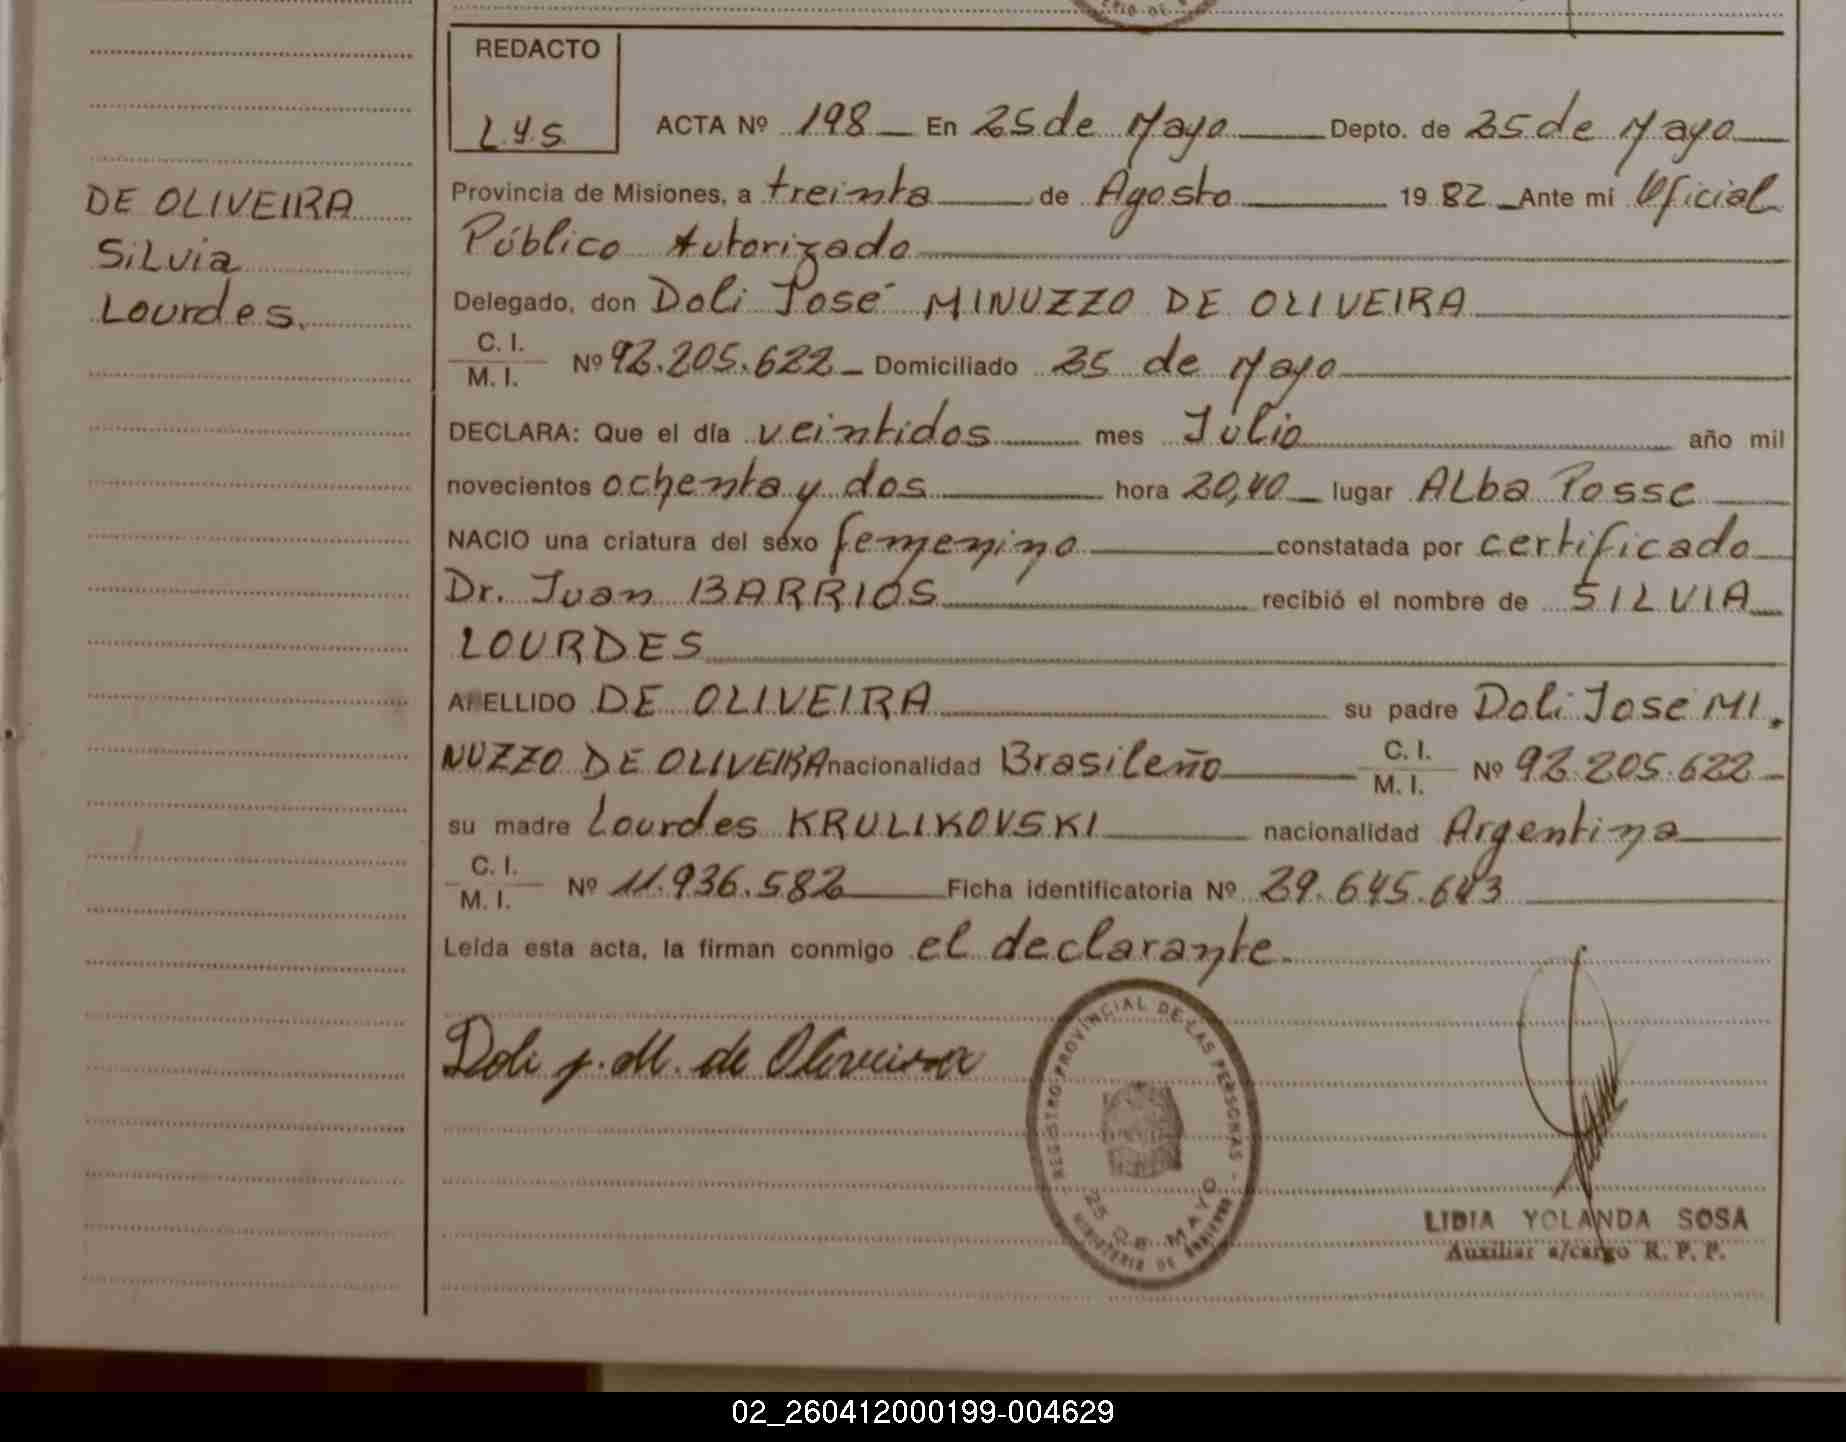 REDACTO
L.Y.S.
ACTA Nº 198 En 25 de Mayo Depto. de 25 de Mayo
DE OLIVEIRA
Silvia
Lourdes.
Provincia de Misiones, a treinta de Agosto 19 82 Ante mí Oficial
Público Autorizado
Delegado, don Doli José MINUZZO DE OLIVEIRA
C. I.
M. I.
Nº 92.205.622 Domiciliado 25 de Mayo
DECLARA: Que el día veintidos mes Julio año mil
novecientos ochenta y dos hora 20,40 lugar ALba Posse
NACIO una criatura del sexo femenino constatada por certificado
Dr. Juan BARRIOS recibió el nombre de SILVIA
LOURDES
APELLIDO DE OLIVEIRA su padre Doli Jose MI.
NUZZO DE OLIVEIRA nacionalidad Brasileño C. I. M. I. Nº 92.205.622
su madre Lourdes KRULIKOVSKI nacionalidad Argentina
C. I.
M. I.
Nº 11.936.582 Ficha identificatoria Nº 29.645.643
Leída esta acta, la firman conmigo el declarante.
Doli J. M. de Oliveira
REGISTRO PROVINCIAL DE LAS PERSONAS
25 DE MAYO
MINISTERIO DE GOBIERNO
LIDIA YOLANDA SOSA
Auxiliar a/cargo R. P. P.
02_260412000199-004629